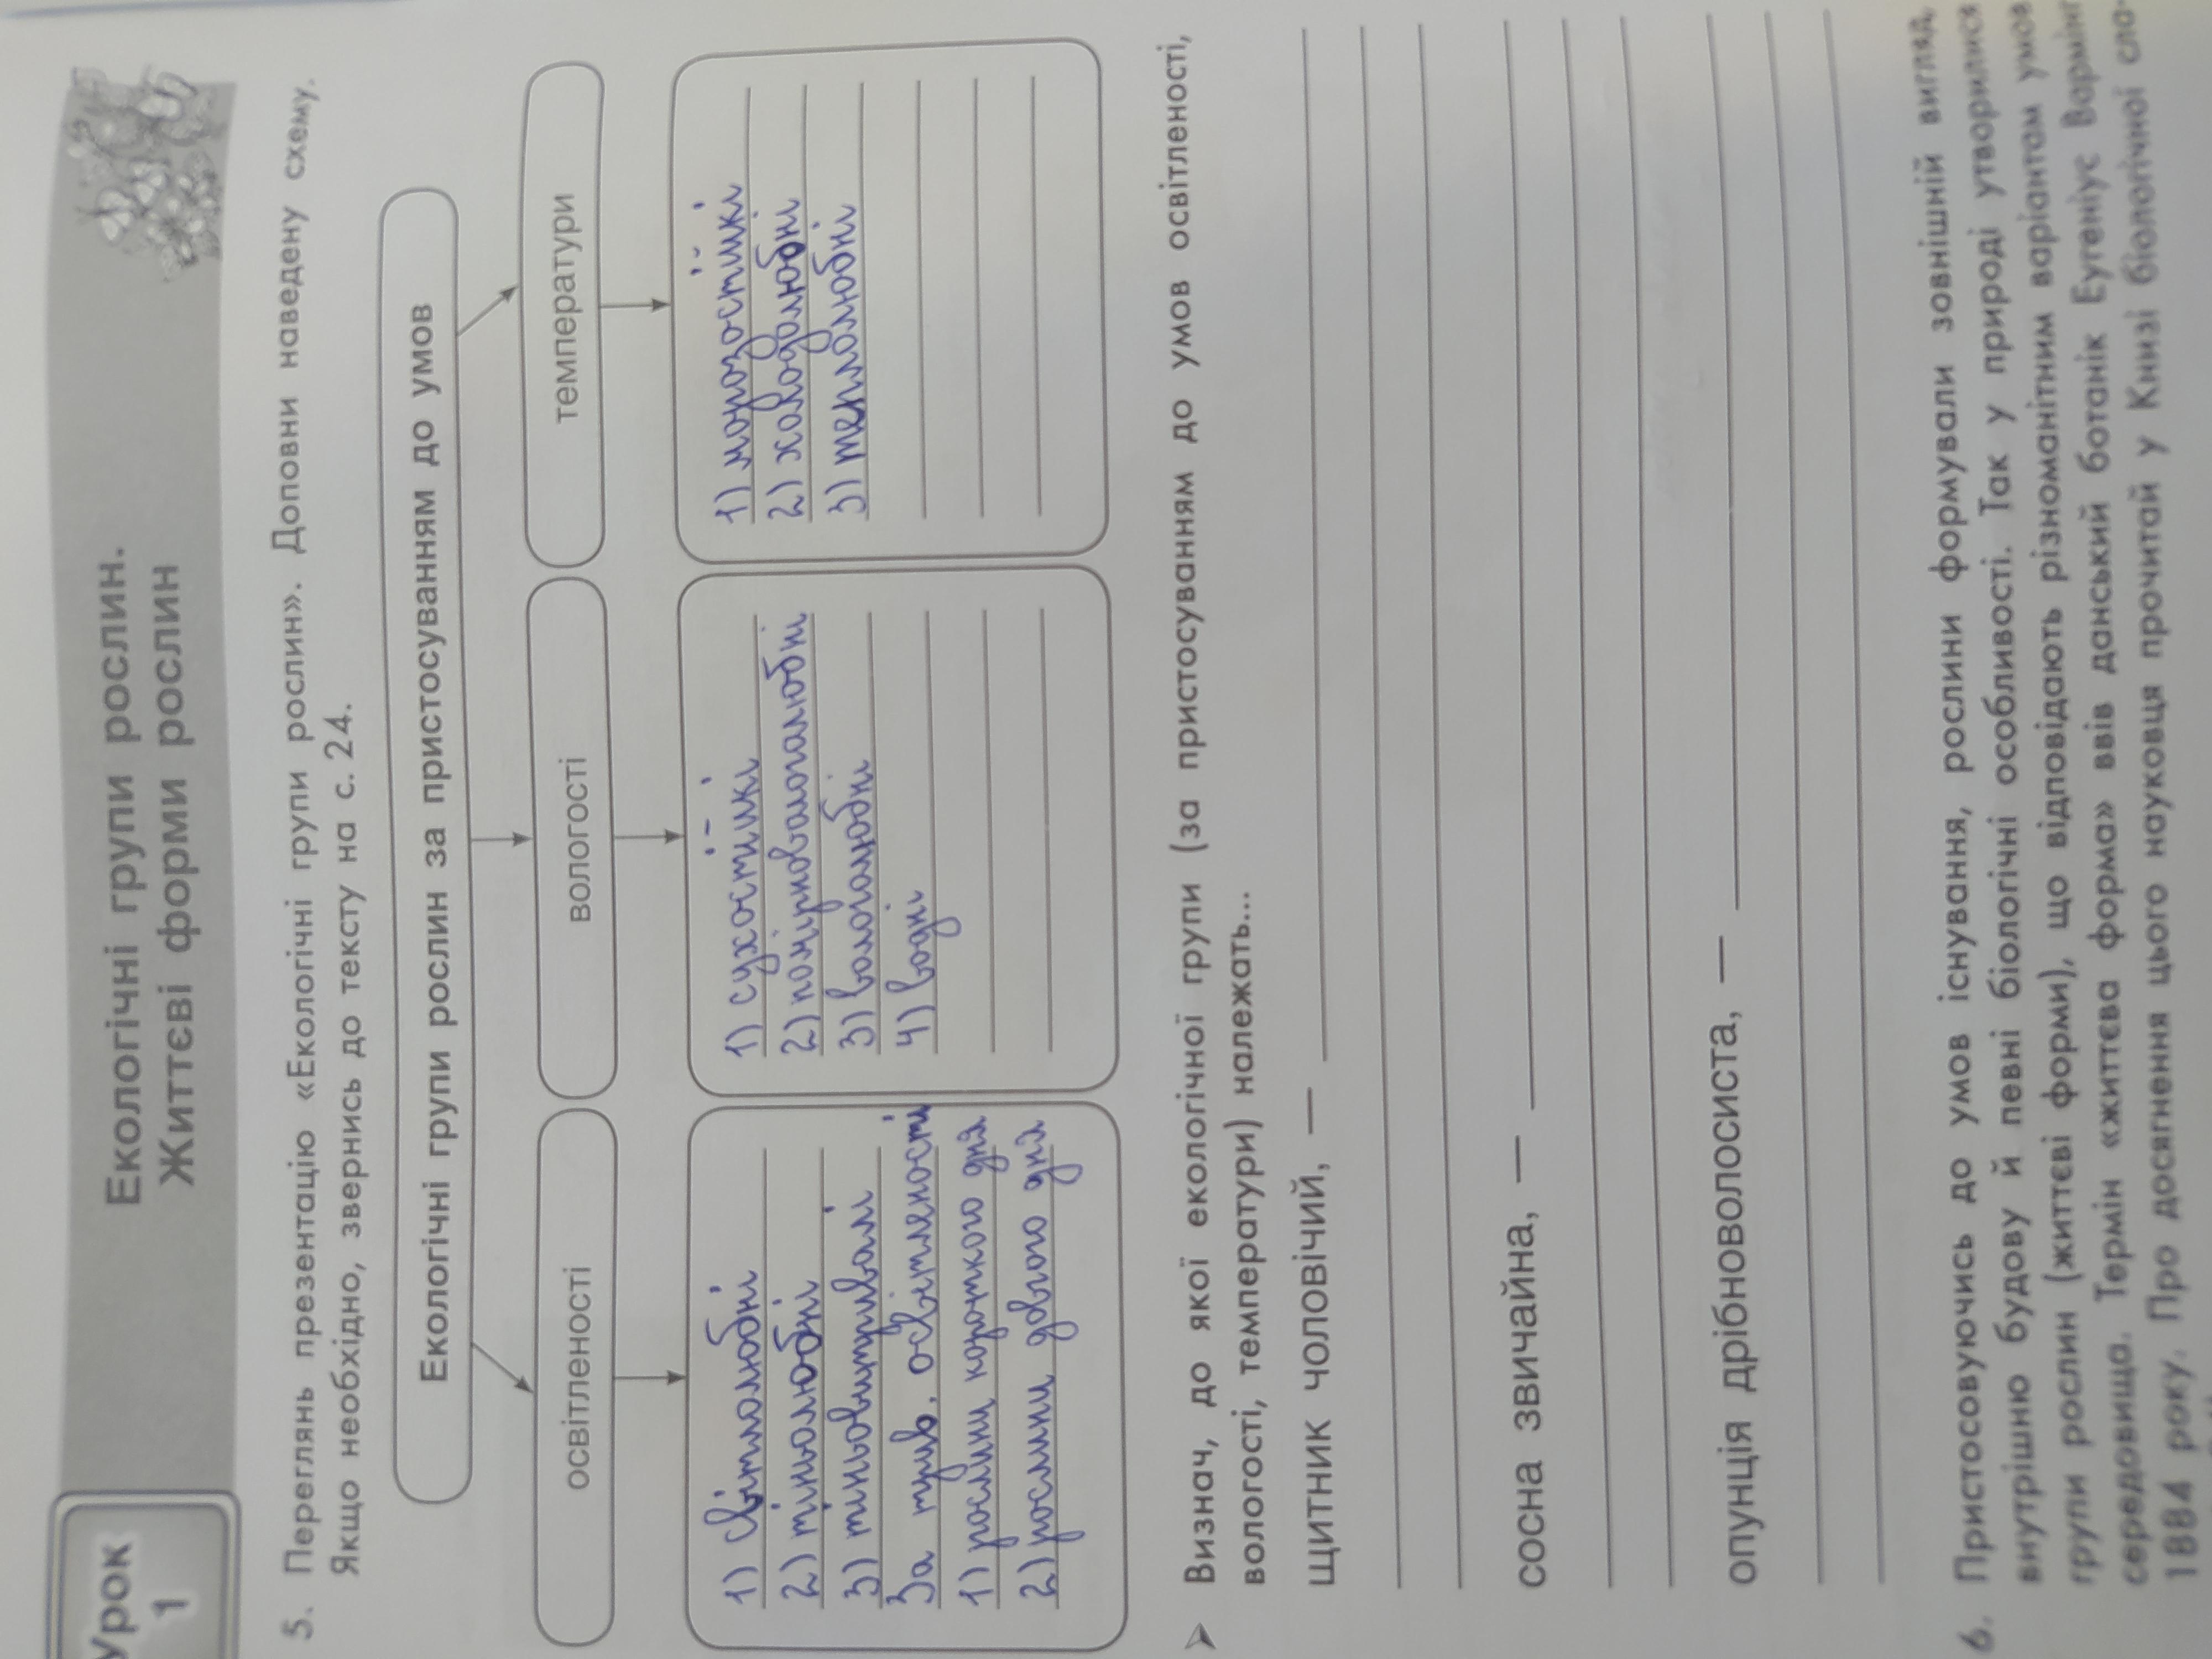 Урок
1
Екологічні групи рослин.
Життєві форми рослин
5. Переглянь презентацію «Екологічні групи рослин». Доповни наведену схему.
Якщо необхідно, звернись до тексту на с. 24.
Екологічні групи рослин за пристосуванням до умов
освітленості
вологості
температури
1) світлолюбні
2) тіньолюбні
3) тіньовитривалі
За трив. освітленості
1) рослини короткого дня
2) рослини довгого дня
1) сухостійкі
2) помірновологолюбні
3) вологолюбні
4) водні
1) морозостійкі
2) холодолюбні
3) теплолюбні
➤ Визнач, до якої екологічної групи (за пристосуванням до умов освітленості,
вологості, температури) належать...
щитник чоловічий, —
сосна звичайна, —
опунція дрібноволосиста, —
6. Пристосовуючись до умов існування, рослини формували зовнішній вигляд,
внутрішню будову й певні біологічні особливості. Так у природі утворилися
групи рослин (життєві форми), що відповідають різноманітним варіантам умов
середовища. Термін «життєва форма» ввів данський ботанік Еугеніус Вармінг
1884 року. Про досягнення цього науковця прочитай у Книзі біологічної сла-